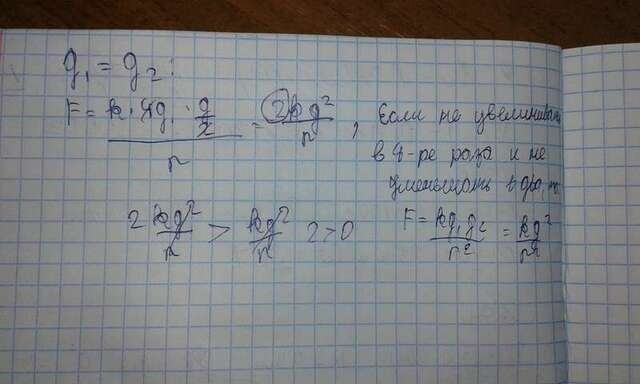 q₁ = q₂ :
F = k · 4q · q/2 / r = 2kq²/r , Если не увеличивать
в 4-ре раза и не
уменьшать в два, то
2 kq²/r > kq²/r 2 > 0 F = kq₁q₂/r² = kq²/r²